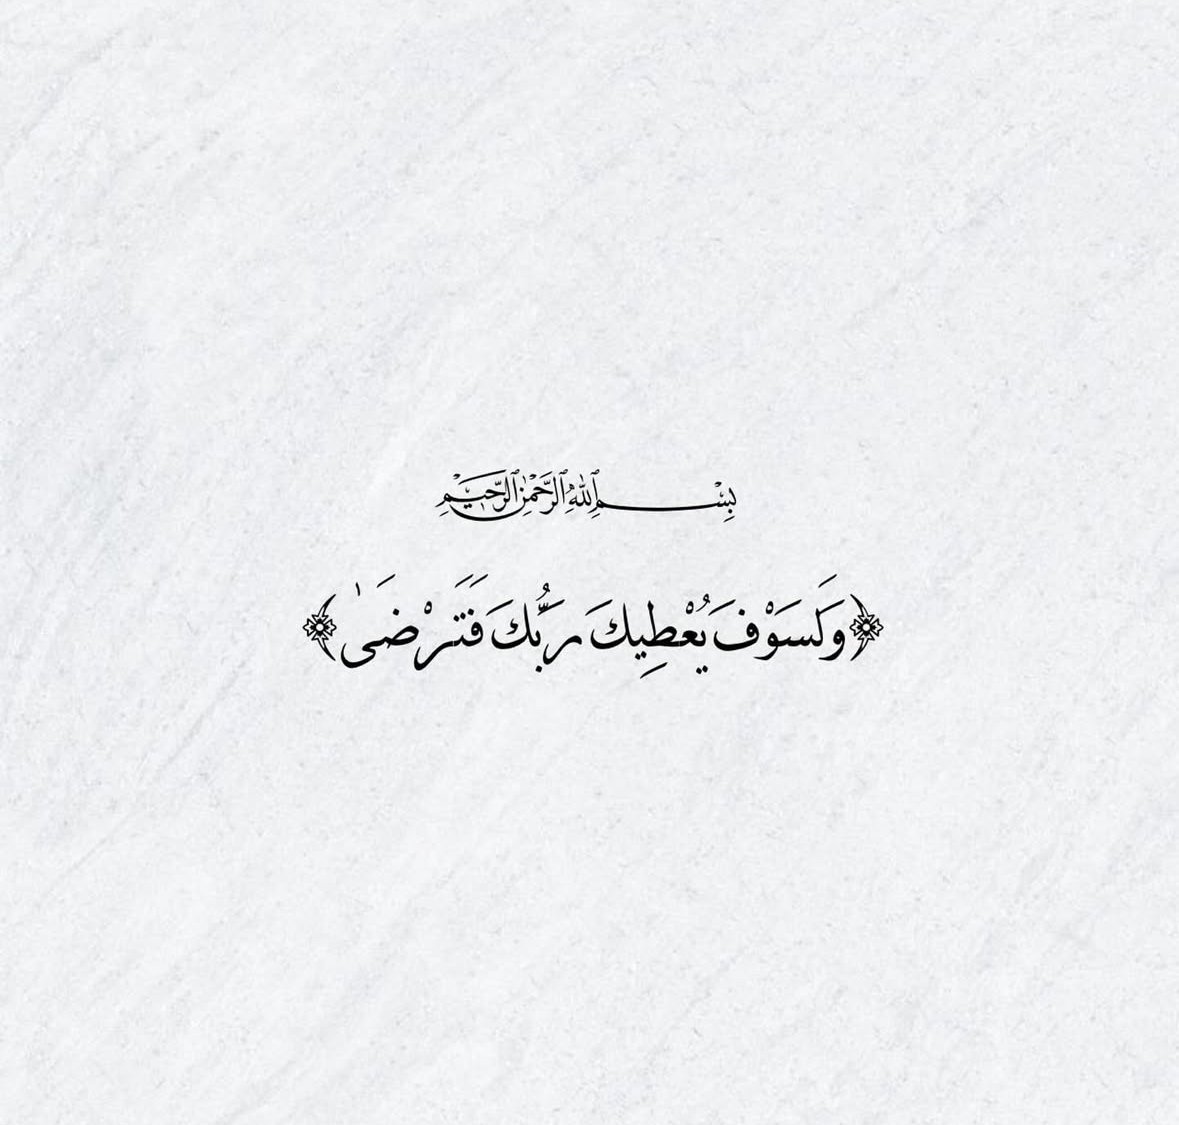 بِسْمِ ٱللَّهِ ٱلرَّحْمَٰنِ ٱلرَّحِيمِ
﴿وَلَسَوْفَ يُعْطِيكَ رَبُّكَ فَتَرْضَىٰ﴾